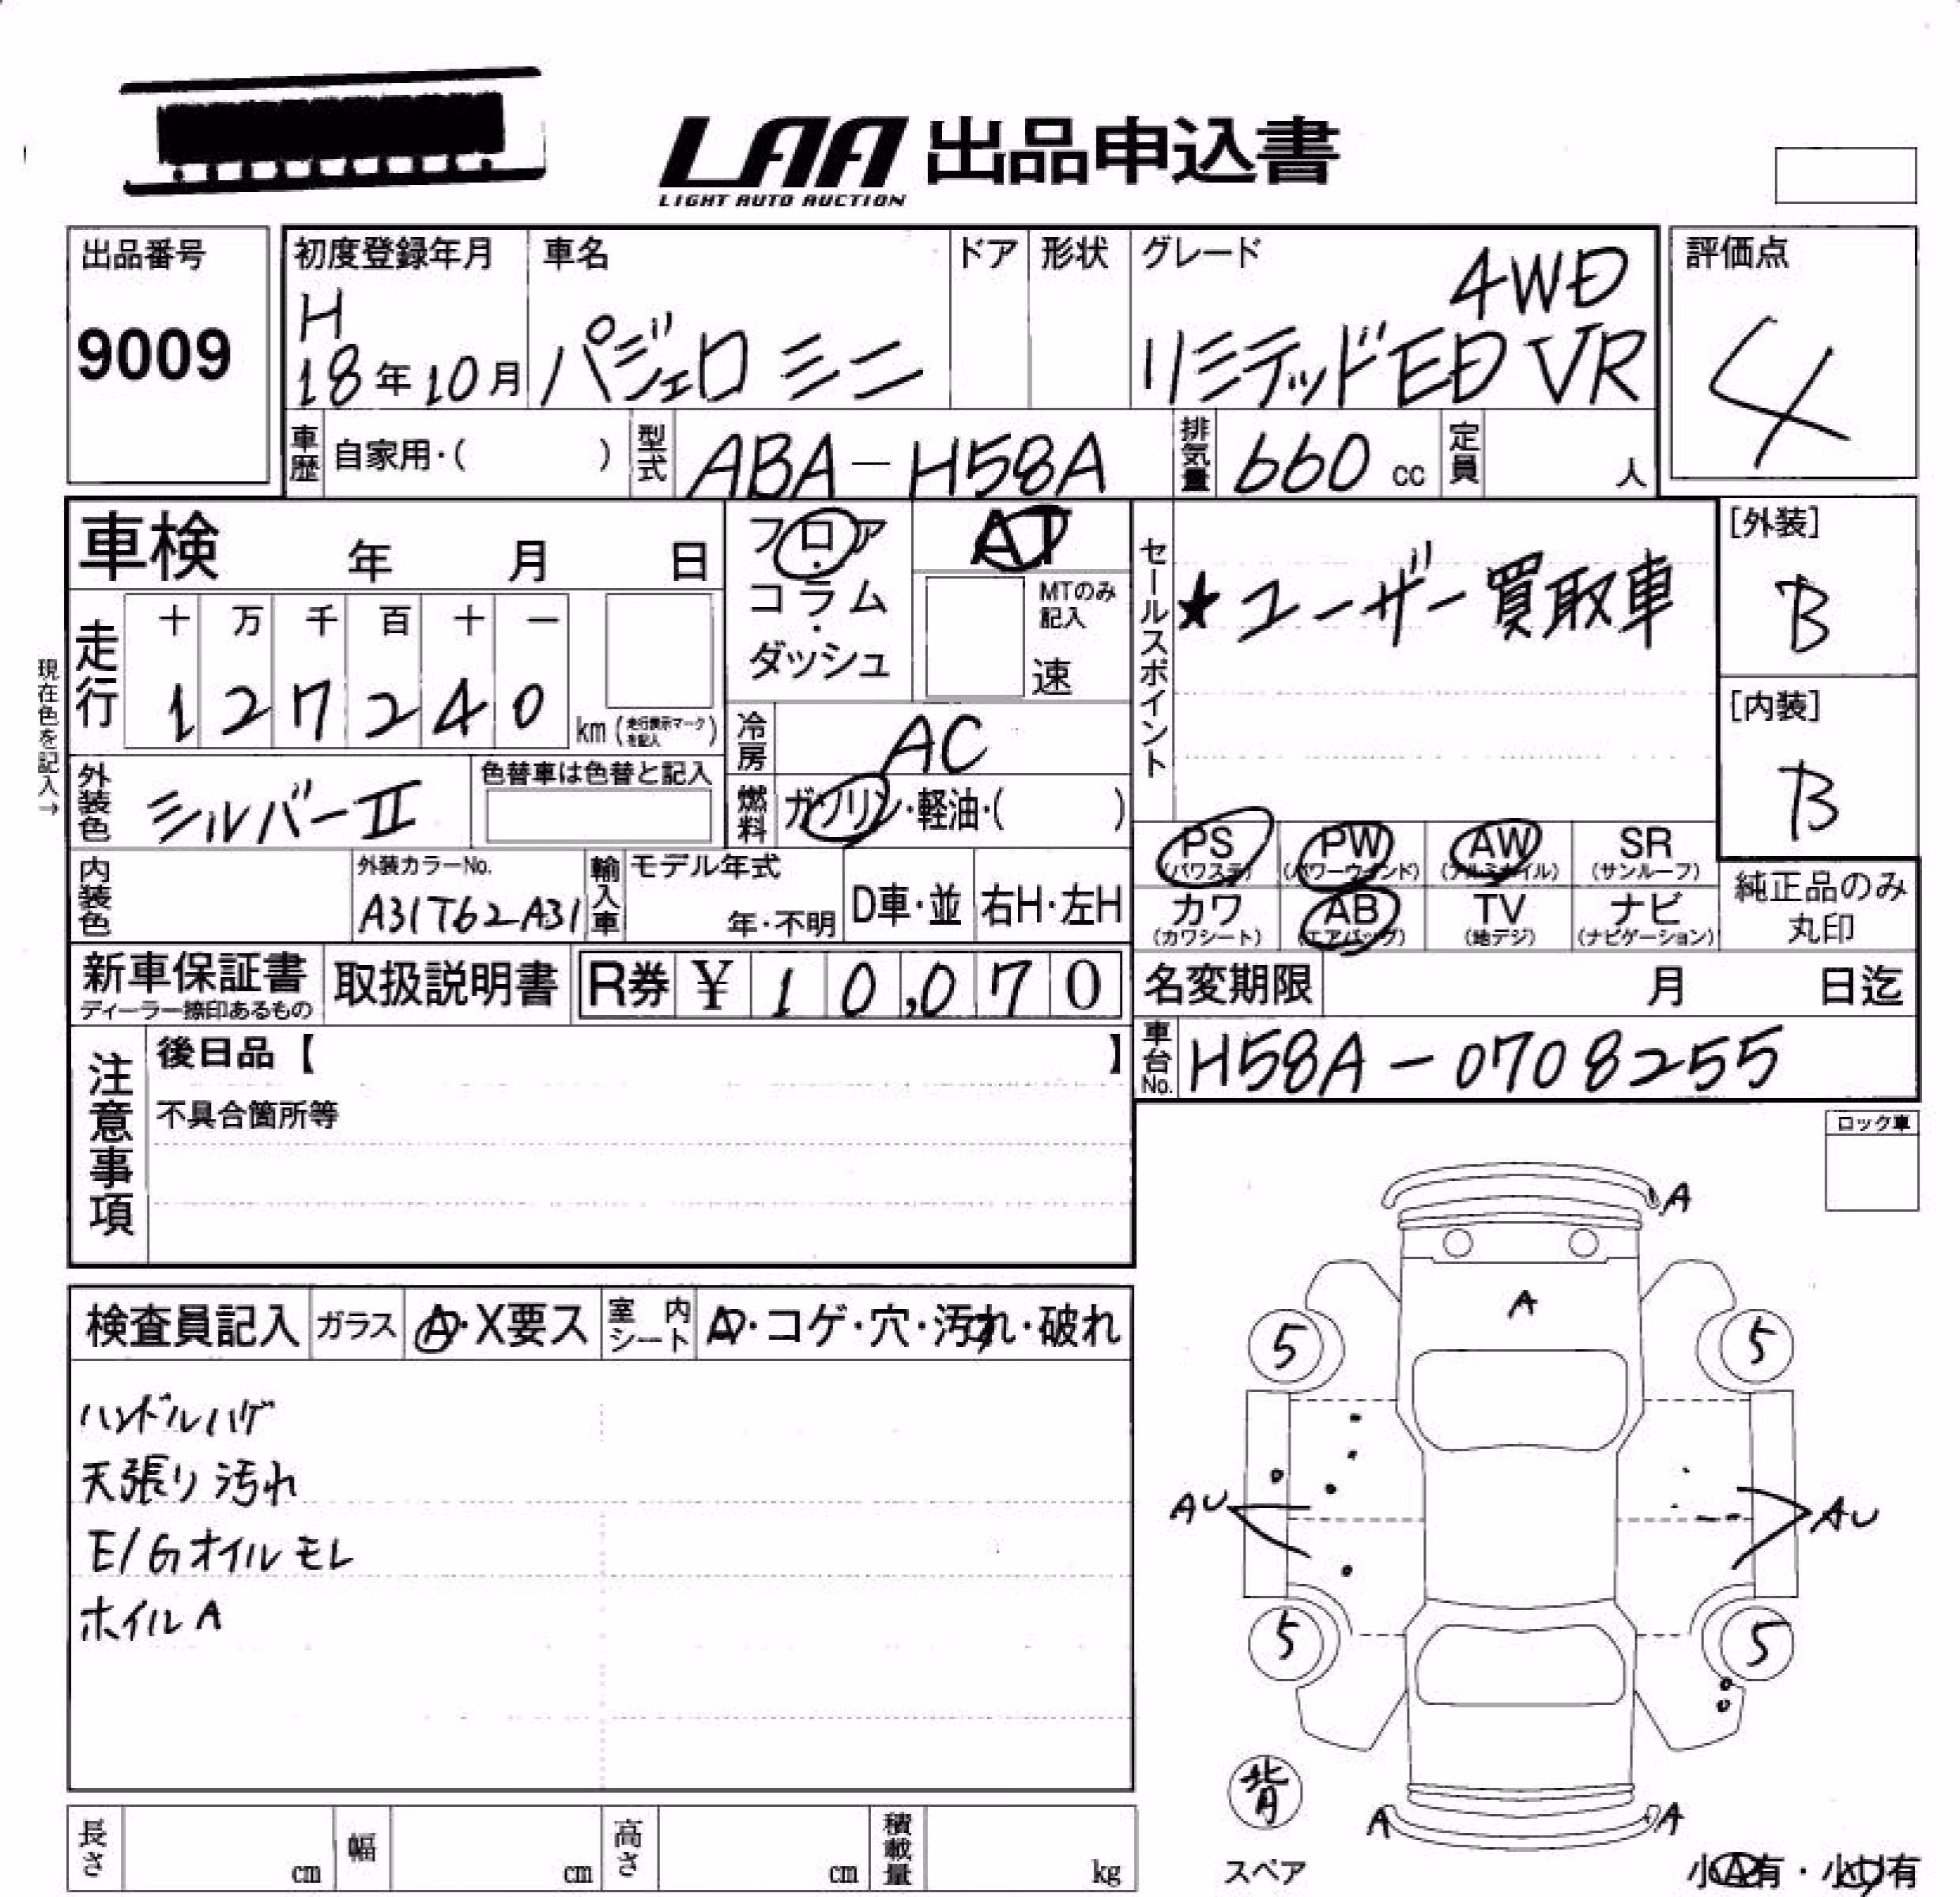 LAA 出品申込書
LIGHT AUTO AUCTION
出品番号
9009
初度登録年月
H
18年10月
車名
パジェロミニ
ドア
形状
グレード
4WD
リミテッドED VR
評価点
4
車歴
自家用・( )
型式
ABA-H58A
排気量
660 cc
定員
人
車検 年 月 日
フロア
・
コラム
・
ダッシュ
AT
MTのみ
記入
速
セールスポイント
★ユーザー買取車
[外装]
B
[内装]
B
現在色を記入→
走行
十 万 千 百 十 一
1 2 7 2 4 0
km(走行表示マークを記入)
冷房
AC
外装色
シルバーII
色替車は色替と記入
燃料
ガソリン・軽油・( )
PS
(パワステ)
PW
(パワーウインド)
AW
(アルミホイル)
SR
(サンルーフ)
カワ
(カワシート)
AB
(エアバッグ)
TV
(地デジ)
ナビ
(ナビゲーション)
純正品のみ
丸印
内装色
外装カラーNo.
A31T62A31
輸入車
モデル年式
年・不明
D車・並
右H・左H
新車保証書
ディーラー捺印あるもの
取扱説明書
R券 ¥ 1 0,0 7 0
名変期限 月 日迄
車台No.
H58A-0708255
注意事項
後日品【 】
不具合箇所等
ロック車
検査員記入
ガラス
A・X要ス
室内
シート
A・コゲ・穴・汚れ・破れ
ハンドルハゲ
天張り汚れ
E/Gオイルモレ
ホイルA
A
A
5
5
AU
AU
5
5
背
スペア
A
A
小A有・小U有
長さ
cm
幅
cm
高さ
cm
積載量
kg